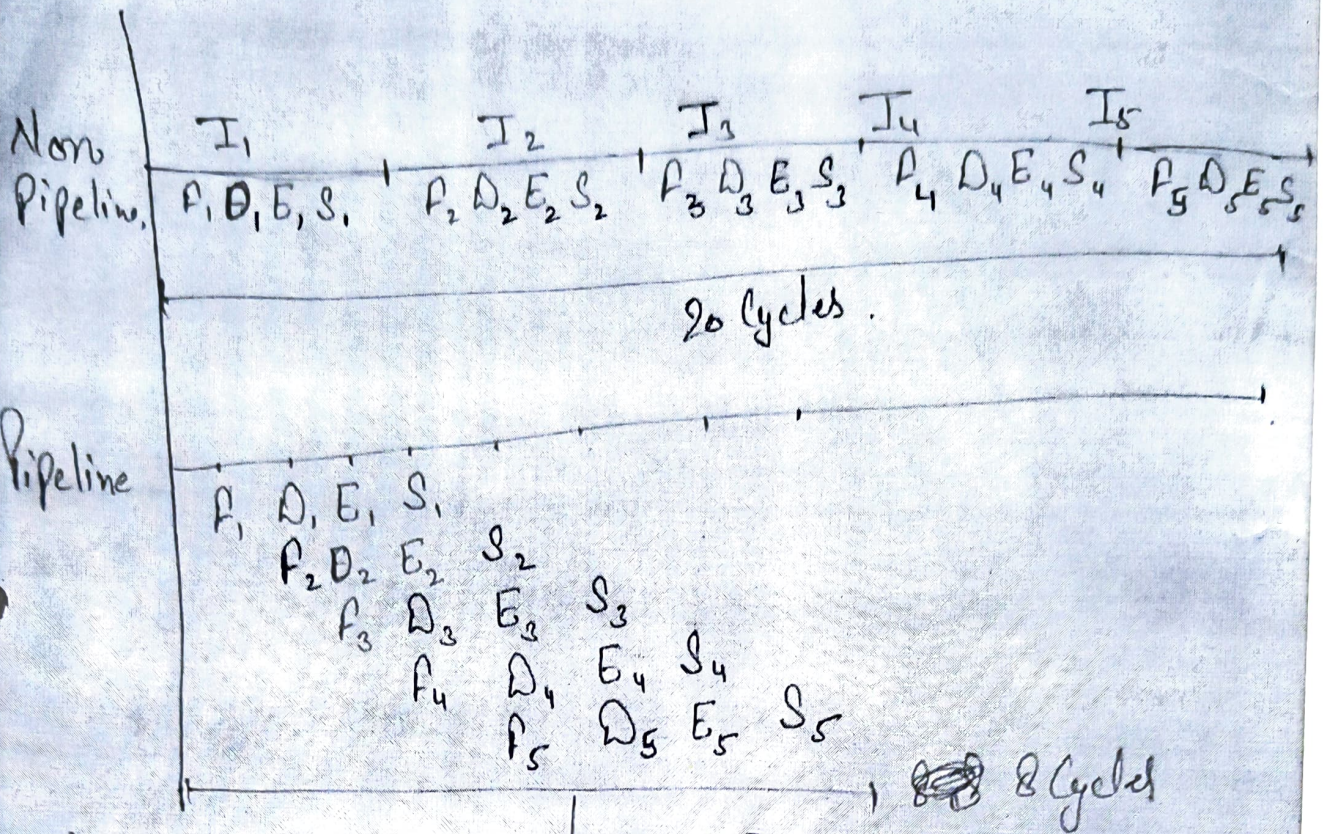 I₁ I₂ I₃ I₄ I₅
Non
Pipeline.
F₁ D₁ E₁ S₁ F₂ D₂ E₂ S₂ F₃ D₃ E₃ S₃ F₄ D₄ E₄ S₄ F₅ D₅ E₅ S₅
20 Cycles.
Pipeline
F₁ D₁ E₁ S₁
F₂ D₂ E₂ S₂
F₃ D₃ E₃ S₃
F₄ D₄ E₄ S₄
F₅ D₅ E₅ S₅
8 Cycles